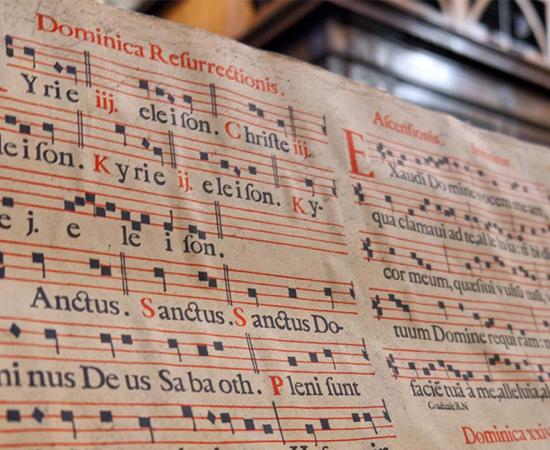 Dominica Resurrectionis.
Yrie iij. eleison. Christe iij.
leison. Kyrie ij. eleison. Ky-
e j. e le i son.
Anctus. Sanctus. Sanctus Do-
minus Deus Sabaoth. Pleni sunt
Ascensionis.
Exaudi Domine vocem meam,
qua clamaui ad te, alleluia: ti bi di
cor meum, quæsiui vultū tuū,
tuum Domine requiram: n
faciē tuā à me, alleluia, al
Graduale R.N
Dominica xxi